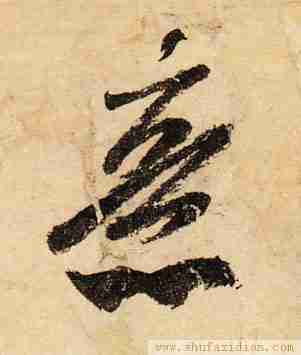 意
www.shufazidian.com